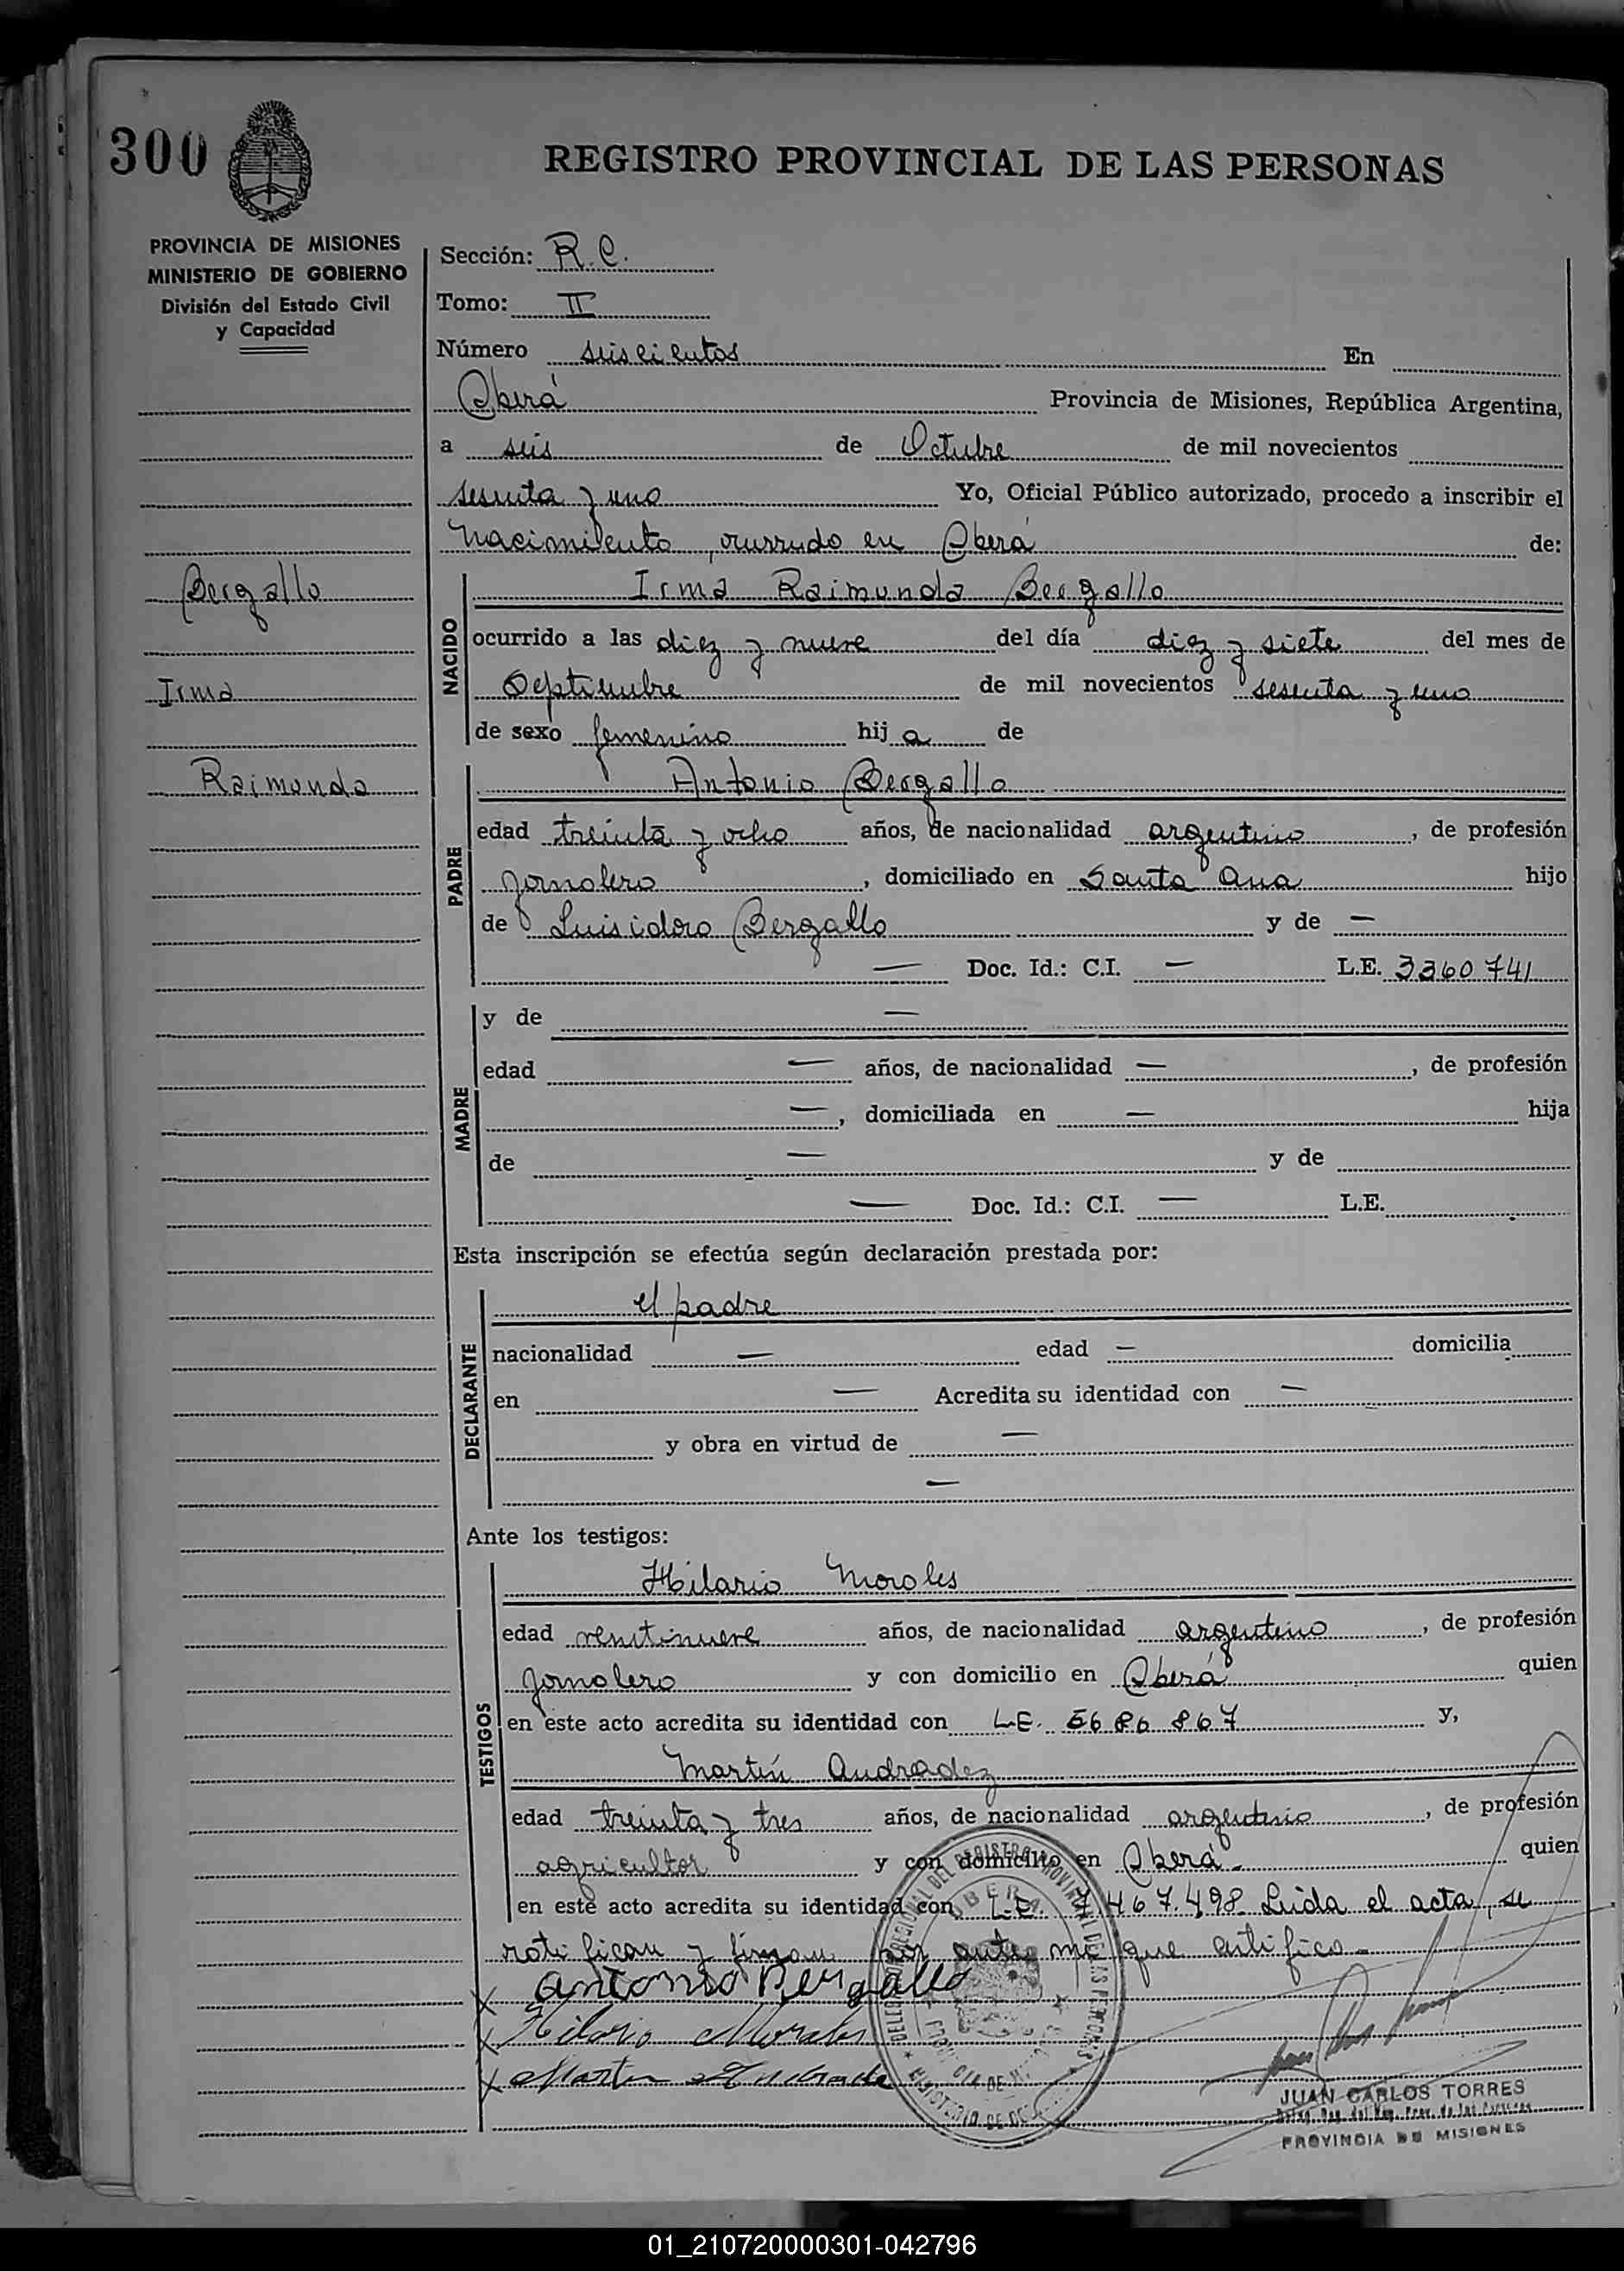 300
REGISTRO PROVINCIAL DE LAS PERSONAS
PROVINCIA DE MISIONES
MINISTERIO DE GOBIERNO
División del Estado Civil
y Capacidad
Bergallo
Irma
Raimunda
Sección: R.C.
Tomo: II
Número seiscientos En
Oberá Provincia de Misiones, República Argentina,
a seis de Octubre de mil novecientos
sesenta y uno Yo, Oficial Público autorizado, procedo a inscribir el
nacimiento, ocurrido en Oberá de:
NACIDO
Irma Raimunda Bergallo
ocurrido a las diez y nueve del día diez y siete del mes de
Septiembre de mil novecientos sesenta y uno
de sexo femenino hij a de
PADRE
Antonio Bergallo
edad treinta y ocho años, de nacionalidad argentino, de profesión
jornalero, domiciliado en Santa Ana hijo
de Luis idoro Bergallo y de —
— Doc. Id.: C.I. — L.E. 3360741
MADRE
y de —
edad — años, de nacionalidad —, de profesión
—, domiciliada en — hija
de — y de
— Doc. Id.: C.I. — L.E.
Esta inscripción se efectúa según declaración prestada por:
DECLARANTE
el padre
nacionalidad — edad — domicilia
en — Acredita su identidad con —
y obra en virtud de —
—
Ante los testigos:
TESTIGOS
Hilario Morales
edad veintinueve años, de nacionalidad argentino, de profesión
jornalero y con domicilio en Oberá quien
en este acto acredita su identidad con L.E. 5686867 y,
Martín Andradez
edad treinta y tres años, de nacionalidad argentino, de profesión
agricultor y con domicilio en Oberá quien
en este acto acredita su identidad con L.E. 7.467.498 Leída el acta, se
ratifican y firman por ante mí que certifico.
Antonio Bergallo
Hilario Morales
Martin Andrade
JUAN CARLOS TORRES
PROVINCIA DE MISIONES
01_210720000301-042796